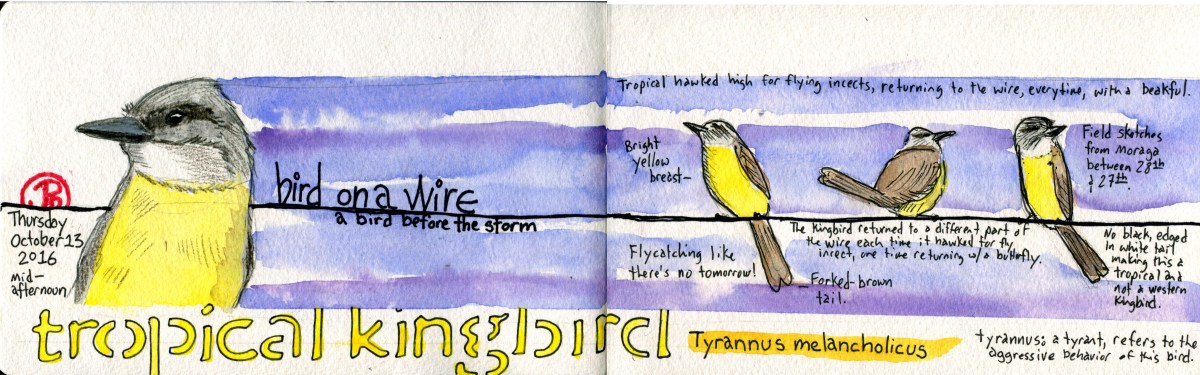 JB
Thursday
October 13
2016
mid-
afternoon
bird on a wire
a bird before the storm
tropical kingbird
Tropical hawked high for flying incects, returning to the wire, everytime, with a beakful.
Bright
yellow
breast-
Field sketches
from Moraga
between 28th
& 27th.
Flycatching like
there's no tomorrow!
The kingbird returned to a different part of
the wire each time it hawked for fly
incect, one time returning w/a butterfly.
-Forked-brown
tail.
No black, edged
in white tail
making this a
tropical and
not a western
Kingbird.
Tyrannus melancholicus
tyrannus: a tyrant, refers to the
aggressive behavior of this bird.